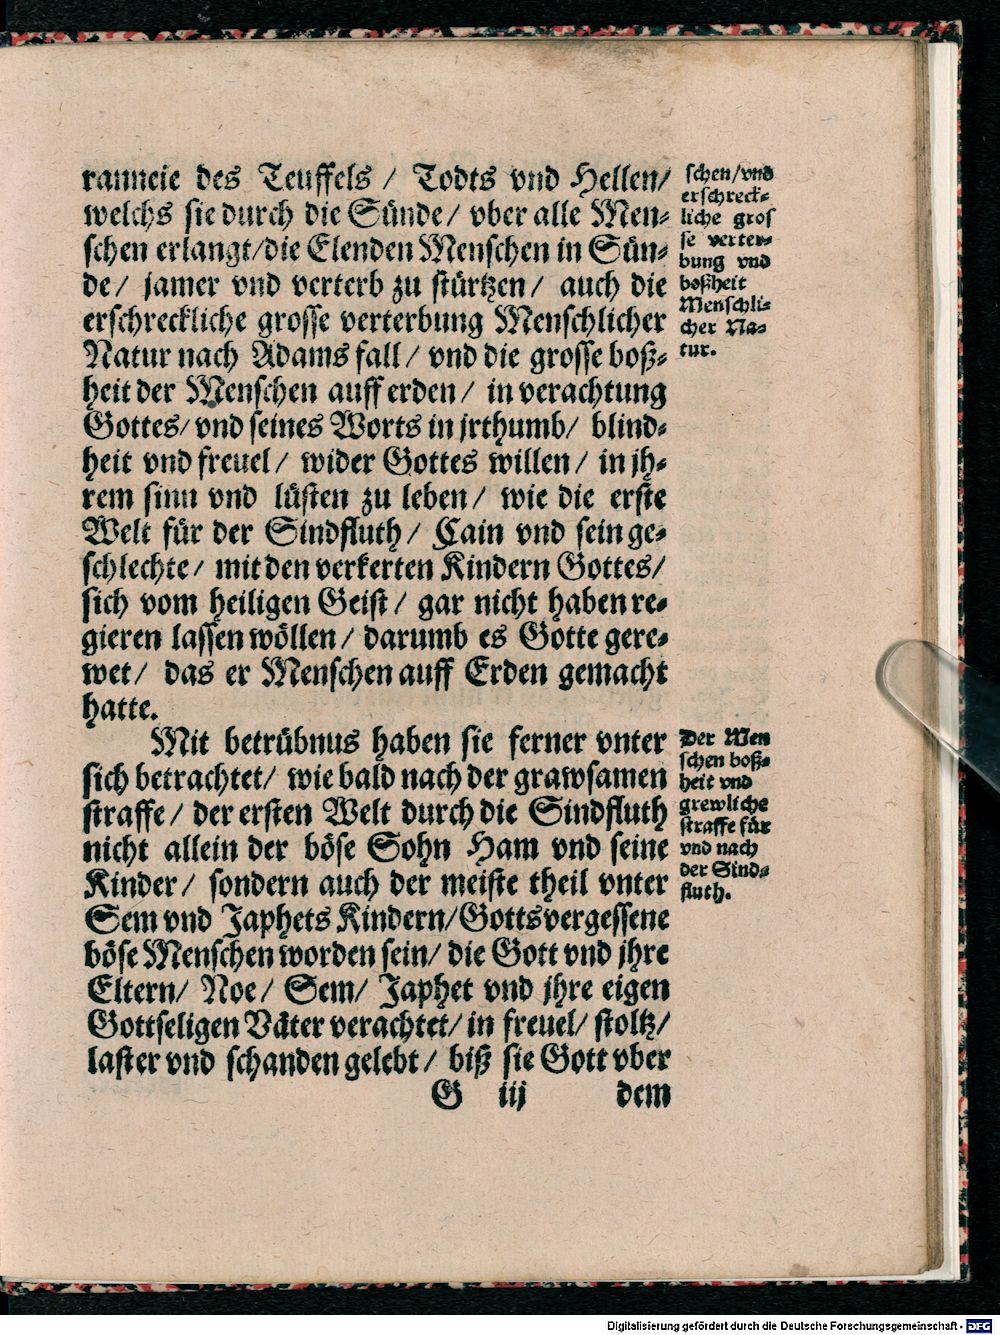 ranneie des Teuffels / Todts vnd Hellen/
welchs sie durch die Sünde/ vber alle Men-
schen erlangt/die Elenden Menschen in Sün-
de/ jamer vnd verterb zu stürtzen/ auch die
erschreckliche grosse verterbung Menschlicher
Natur nach Adams fall/ vnd die grosse boß-
heit der Menschen auff erden/ in verachtung
Gottes/ vnd seines Worts in jrthumb/ blind-
heit vnd freuel/ wider Gottes willen/ in jh-
rem sinn vnd lüsten zu leben/ wie die erste
Welt für der Sindfluth/ Cain vnd sein ge-
schlechte/ mit den verkerten Kindern Gottes/
sich vom heiligen Geist/ gar nicht haben re-
gieren lassen wöllen/ darumb es Gotte gere-
wet/ das er Menschen auff Erden gemacht
hatte.
schen/vnd
erschreck-
liche gros
se verter-
bung vnd
boßheit
Menschli-
cher Na-
tur.
Mit betrübnus haben sie ferner vnter
sich betrachtet/ wie bald nach der grawsamen
straffe/ der ersten Welt durch die Sindfluth
nicht allein der böse Sohn Ham vnd seine
Kinder/ sondern auch der meiste theil vnter
Sem vnd Japhets Kindern/Gottsvergessene
böse Menschen worden sein/ die Gott vnd jhre
Eltern/ Noe/ Sem/ Japhet vnd jhre eigen
Gottseligen Väter verachtet/ in freuel/ stoltz/
laster vnd schanden gelebt/ biß sie Gott vber
Der Men
schen boß-
heit vnd
grewliche
straffe für
vnd nach
der Sind-
fluth.
G iij dem
Digitalisierung gefördert durch die Deutsche Forschungsgemeinschaft - DFG